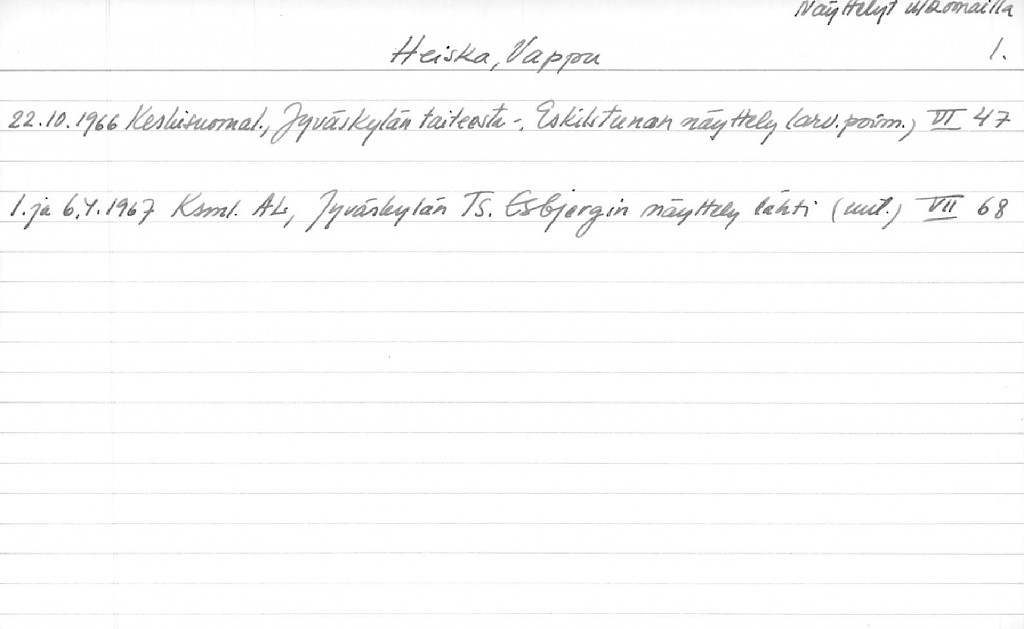 Näyttelyt ulkomailla
Heiska, Vappu 1.
22.10.1966 Keskisuomal., Jyväskylän taiteesta -, Eskilstunan näyttely (arv. poim.) VI 47
1. ja 6.4.1967 Ksml. AL, Jyväskylän Ts. Esbjergin näyttely lähti (uut.) VII 68